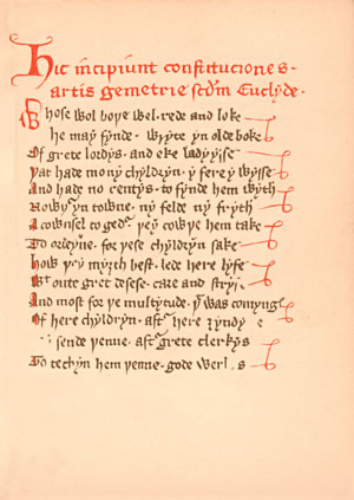 Hic incipiunt constituciones
artis gemetrie scdm Euclyde.
Whose wol boþe wel rede and loke
he may fynde wryte yn olde boke
Of grete lordys and eke ladyysse
þat hade mony chyldryn y fere y wysse
And hade no rentys to fynde hem wyth
Nowþr yn towne ny felde ny fryth
A cownsel to gedr þey cowþe hem take
To ordeyne for þese chyldryn sake
how þey myȝth best lede here lyfe
Wt oute gret desese care and stryf
And most for þe multytude þt was comynge
Of here chyldryn aftr here ȝyndy
sende þenne aftr grete clerkys
To techyn hem þenne gode werkys